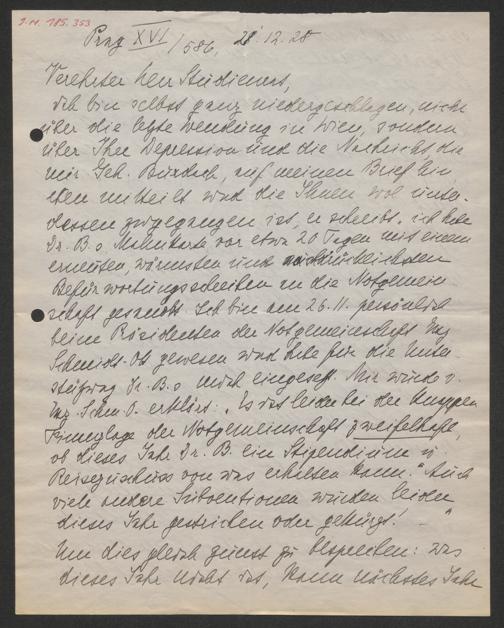 I.N. 185.353
Prag XVI/586, 28.12.28
Verehrter Herr Studienrat,
ich bin selbst ganz niedergeschlagen, nicht
über die letzte Wendung in Wien, sondern
über Ihre Depression und die Nachricht die
mir Geh. Burdach, auf meinen Brief hin,
eben mitteilt und die Ihnen wol unter-
dessen zugegangen ist, er schreibt: ich habe
Dr. B. o vor etwa 20 Tagen mit einem
erneuten, wärmsten und nachdrücklichsten
Befürwortungsschreiben an die Notgemein
schaft gesandt. Ich bin am 26.11. persönlich
beim Präsidenten der Notgemeinschaft Exz
Schmidt-Ott gewesen und habe für die Unter-
stützung Dr. B. o mich eingesetzt. Mir wurde v.
Exz. Schm. O. erklärt: „Es ist leider bei der knappen
Finanzlage der Notgemeinschaft zweifelhaft,
ob dieses Jahr Dr. B. ein Stipendium u.
Reisezuschuss von uns erhalten kann." Auch
viele andere Subventionen wurden leider
dieses Jahr gestrichen oder gekürzt! – "
Um dies gleich zuerst zu besprechen: was
dieses Jahr nicht ist, kann nächstes Jahr